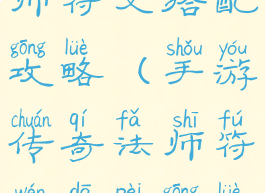 师符文搭配
gōng lüè shǒu yóu
攻略（手游
chuán qí fǎ shī fú
传奇法师符
wén dā pèi gōng lüè